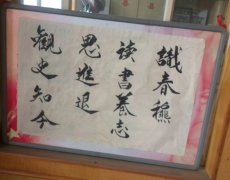 觀史知今
思進退
读書養志
識春穐